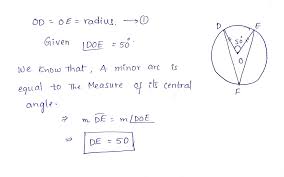 OD = OE = radius. → ①
Given ∠DOE = 50°
We know that, A minor arc is
equal to the Measure of its central
angle.
⇒ m DE = m∠DOE
⇒ DE = 50
D
E
50°
O
F